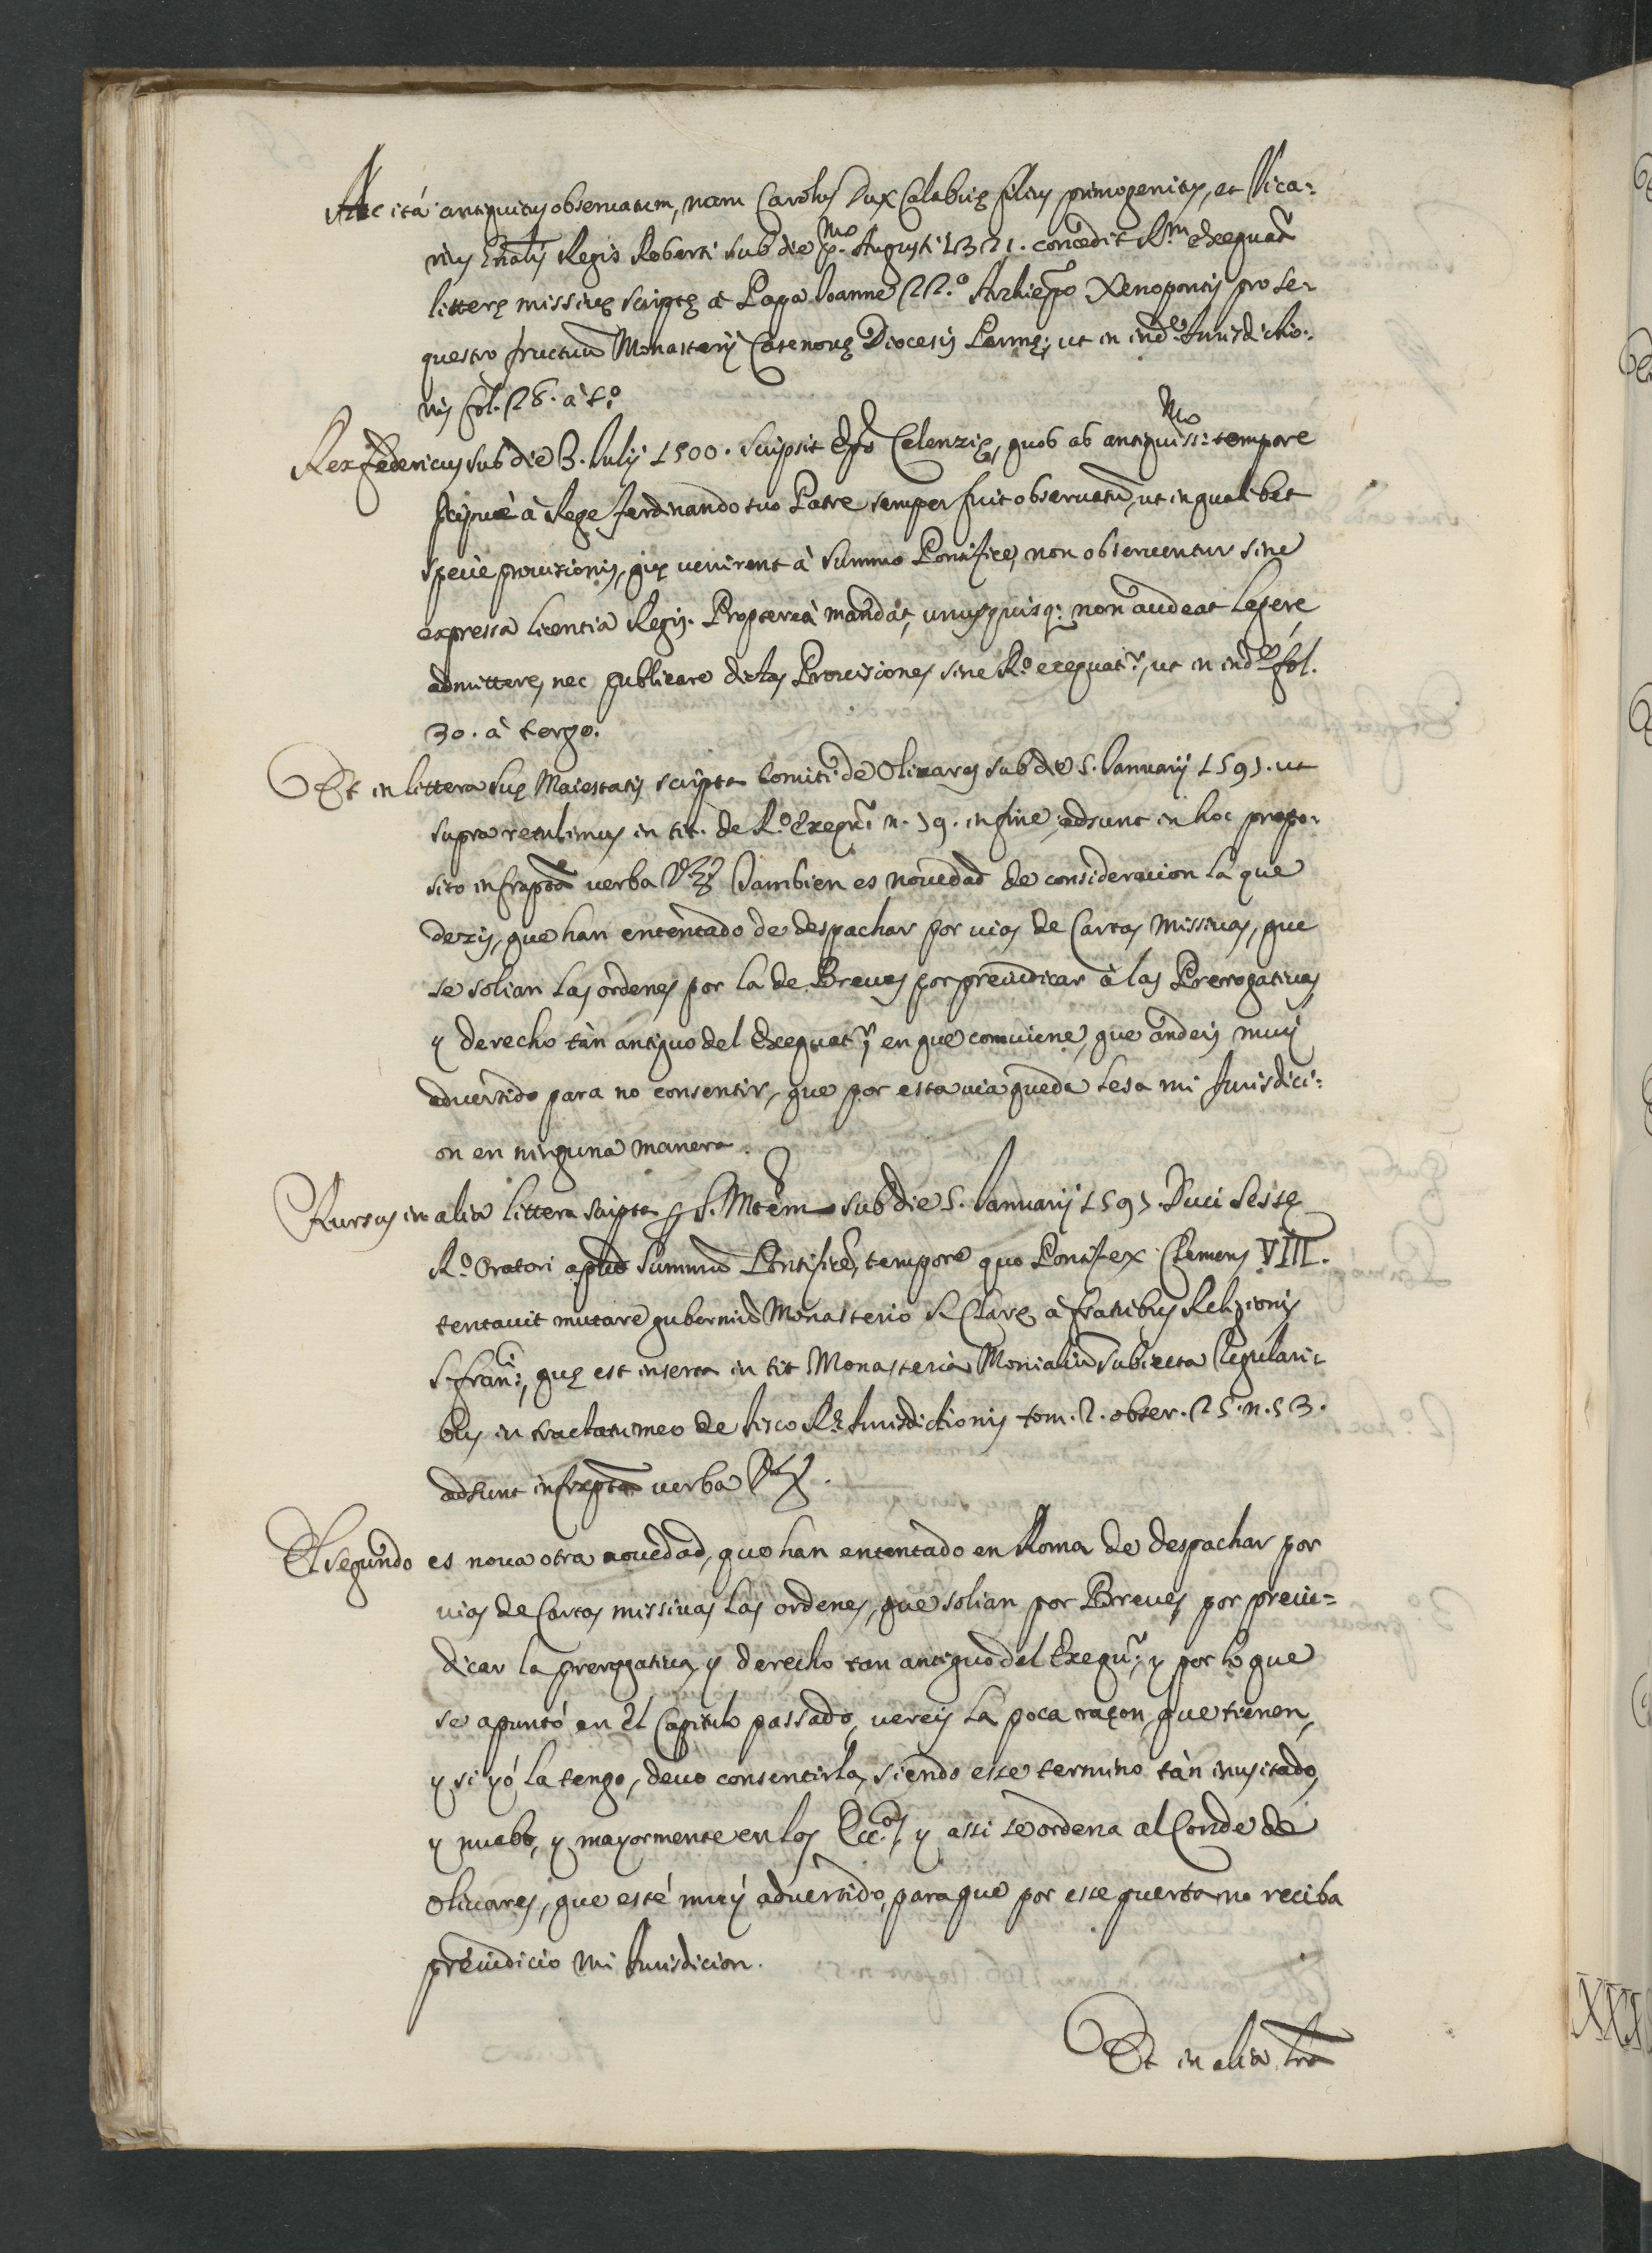 Ac ità antiquitus obseruatum, nam Carolus Dux Calabrię filius primogenitus, et Vica=
rius Gnãlis Regis Roberti sub die p.mo Augusti 1321. concedit R.m exequat.r
litterę missiuę scriptę à Papa Ioanne 22.o Archiepo Xenopontis pro se=
questro fructuũ Monasterij Casenouę Diocesis Parmę; ut in ind.e Iurisdictio=
nis fol. 28. à t.o
Rex Federicus sub die 3. Iulij 1500. scripsit Epõ Celenzię, quod ab antiquiss.mo tempore
à Rege Ferdinando suo Patre semper fuit obseruatũ, ut in qualibet
specie prouisionis, quę uenirent à Summo Pontifice, non obseruentur sine
expressa licentia Regis. Proptereà mandat, unusquisq; non audeat legere,
admittere, nec publicare dictas Prouisiones sine R.o exequat.r, ut in ind.e fol.
30. à tergo.
Et in littera Suę Maiestatis scripta Comiti de Oliuares sub die 5. Ianuarij 1595. ut
supra retulimus in tit. de R.o Exequ.r n. 19. in fine, adsunt in hoc propo=
sito infraptã uerba Vz Tambien es nouedad de consideracion la que
dezis, que han ententado de despachar por uias de Cartas missiuas, que
se solian las ordenes por la de Breues por preiudicar à las Prerrogatiuas
y derecho tàn antiguo del Exequat.r, en que conuiene, que andeis muy
aduertido para no consentir, que por esta uia queda lesa mi Jurisdici=
on en ninguna manera.
Rursus in alia littera scripta p S. Mtem sub die 5. Ianuarij 1595. Duci Sessę
R.o Oratori apud Summũ Pontificẽ, tempore quo Pontifex Clemens VIII.
tentauit mutare guberniũ Monasterio S. Clarę à fratribus Religionis
S. Fran.i, quę est inserta in tit Monasteria Monialiũ subiecta Regulari=
bus in tractatu meo de fisco R.e Iurisdictionis tom. 2. obser. 25. n. 53.
adsunt infraptã uerba Vz.
El segundo es noua otra nouedad, que han ententado en Roma de despachar por
uias de Cartas missiuas las ordenes, que solian por Breues, por preiu=
dicar la prerogatiua, y derecho tan antiguo del Exequ.r, y por lo que
se apuntó en el Capitulo passado, uereis la poca raçon, que tienen,
y si yó la tengo, deuo consentirla, siendo esse termino tàn inusitado,
y nuebo, y mayormente en los Ecc.os, y assi se ordena al Conde de
Oliuares, que esté muy aduertido, para que por esse puerta no reciba
preiudicio mi Iurisdicion.
Et in alia lrã